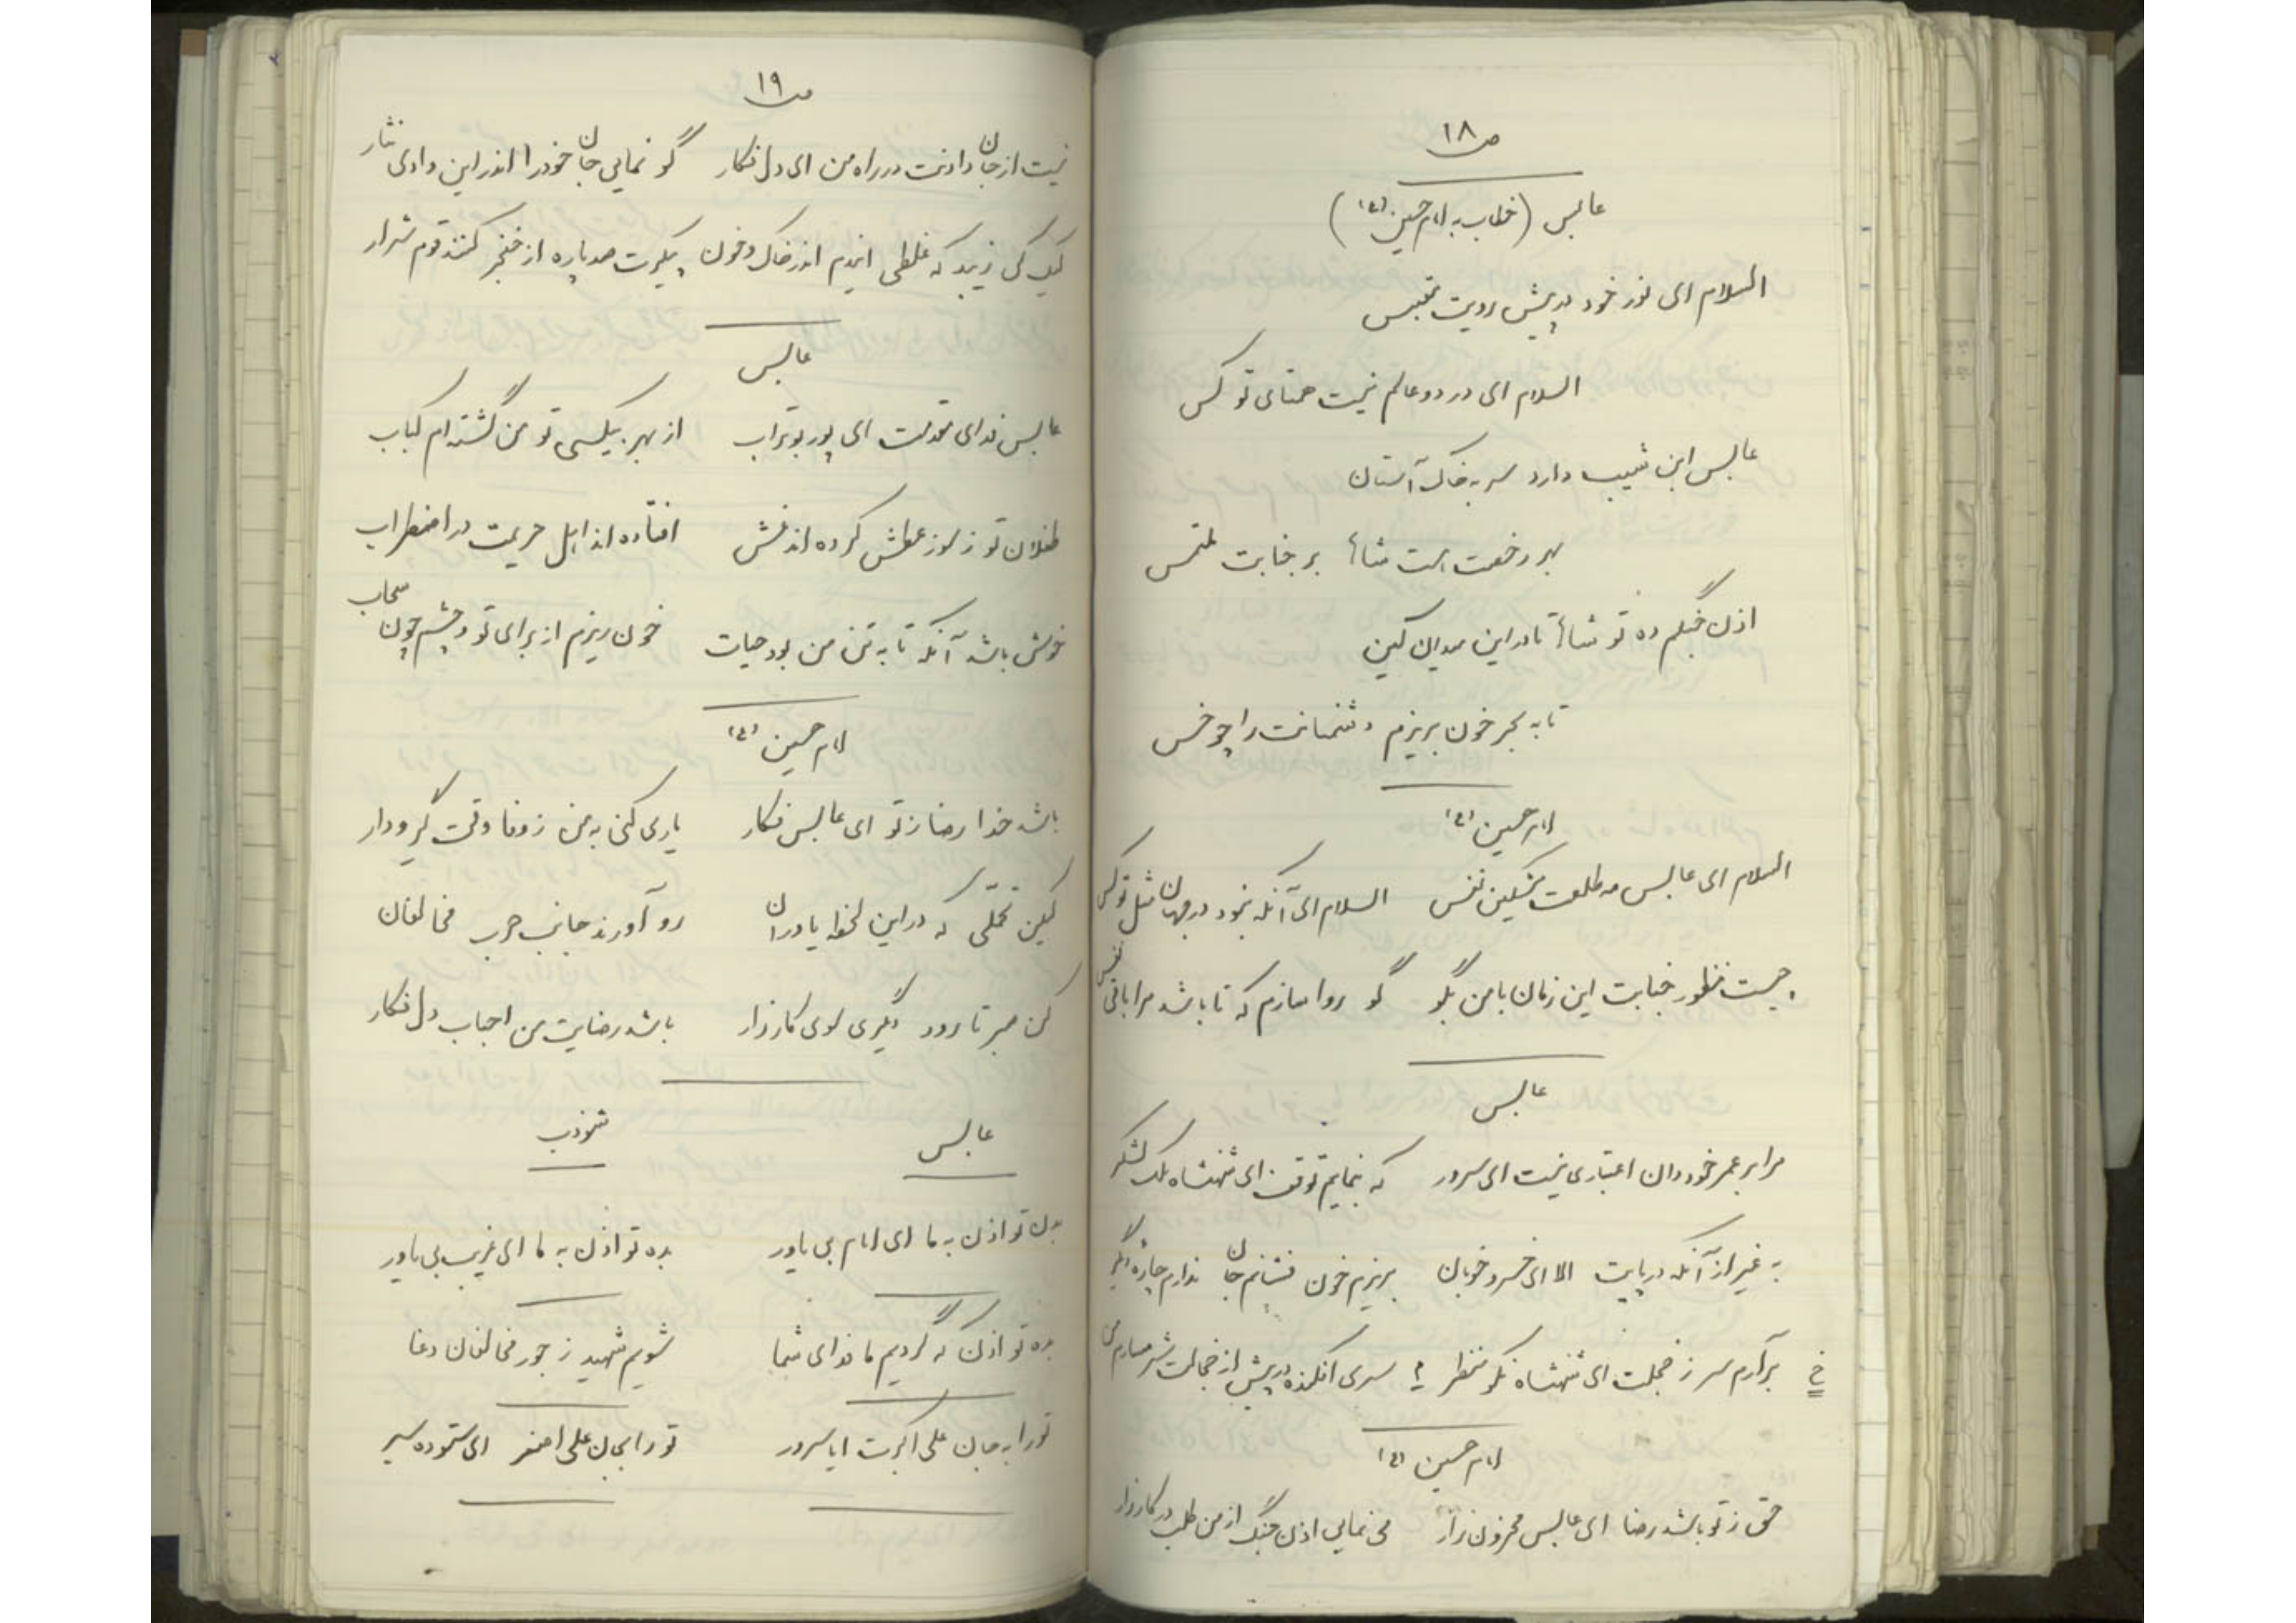 ص ۱۸
عابس (خطاب به امام حسین (ع))
السلام ای نور خود در پیش رویت مقتبس
السلام ای در دو عالم نیست همتای تو کس
عابس ابن شبیب دارد سر به خاک آستان
بهر رخصت هست شاها بر جنابت ملتمس
اذن جنگم ده تو شاها تا در این میدان کین
تا به بحر خون بریزم دشمنانت را چو خس
امام حسین (ع)
السلام ای عابس مه طلعت مشکین نفس السلام ای آنکه نبود در جهان مثل تو کس
چیست منظور جنابت این زمان با من بگو گو روا سازم که تا باشد مرا باقی نفس
عابس
مرا بر عمر خود دان اعتباری نیست ای سرور که بنمایم توقف ای شهنشاه ملک لشکر
به غیر از آنکه در پایت الا ای خسرو خوبان بریزم خون فشانم جان ندارم چاره دیگر
برآرم سر ز خجلت ای شهنشاه نکو منظر سری افکنده در پیش از خجالت شرمسارم من
امام حسین (ع)
حق ز تو باشد رضا ای عابس محزون زار می نمایی اذن جنگ از من طلب در کارزار
ص ۱۹
نیست از جان دادنت در راه من ای دل فکار گو نمایی جان خود را اندر این وادی نثار
لیک کی زیبد که غلطی ایندم اندر خاک و خون پیکرت صد پاره از خنجر کنند قوم شرار
عابس
عابس فدای مقدمت ای پور بوتراب از بهر بیکسی تو من گشته ام کباب
طفلان تو ز سوز عطش کرده اند غش افتاده اند اهل حریمت در اضطراب
خوش باشد آنکه تا به تن من بود حیات خون ریزم از برای تو و چشم چون سحاب
امام حسین (ع)
باشد خدا رضا ز تو ای عابس فکار یاری کنی به من ز وفا وقت گیر و دار
لیکن تحملی که در این لحظه یاوران رو آورند جانب حرب مخالفان
کن صبر تا رود دیگری سوی کارزار باشد رضایت من احباب دل فکار
عابس شوذب
بده تو اذن به ما ای امام بی یاور بده تو اذن به ما ای غریب بی یاور
بده تو اذن که گردیم ما فدای شما شویم شهید ز جور مخالفان دغا
تو را به جان علی اکبرت ایا سرور تو را بجان علی اصغر ای ستوده سیر